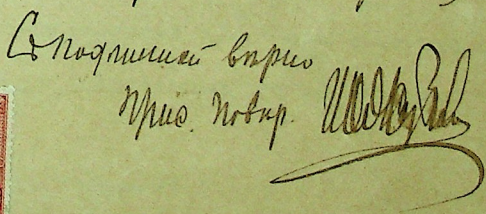 Съ подлинной вѣрно
Прис. Повѣр.